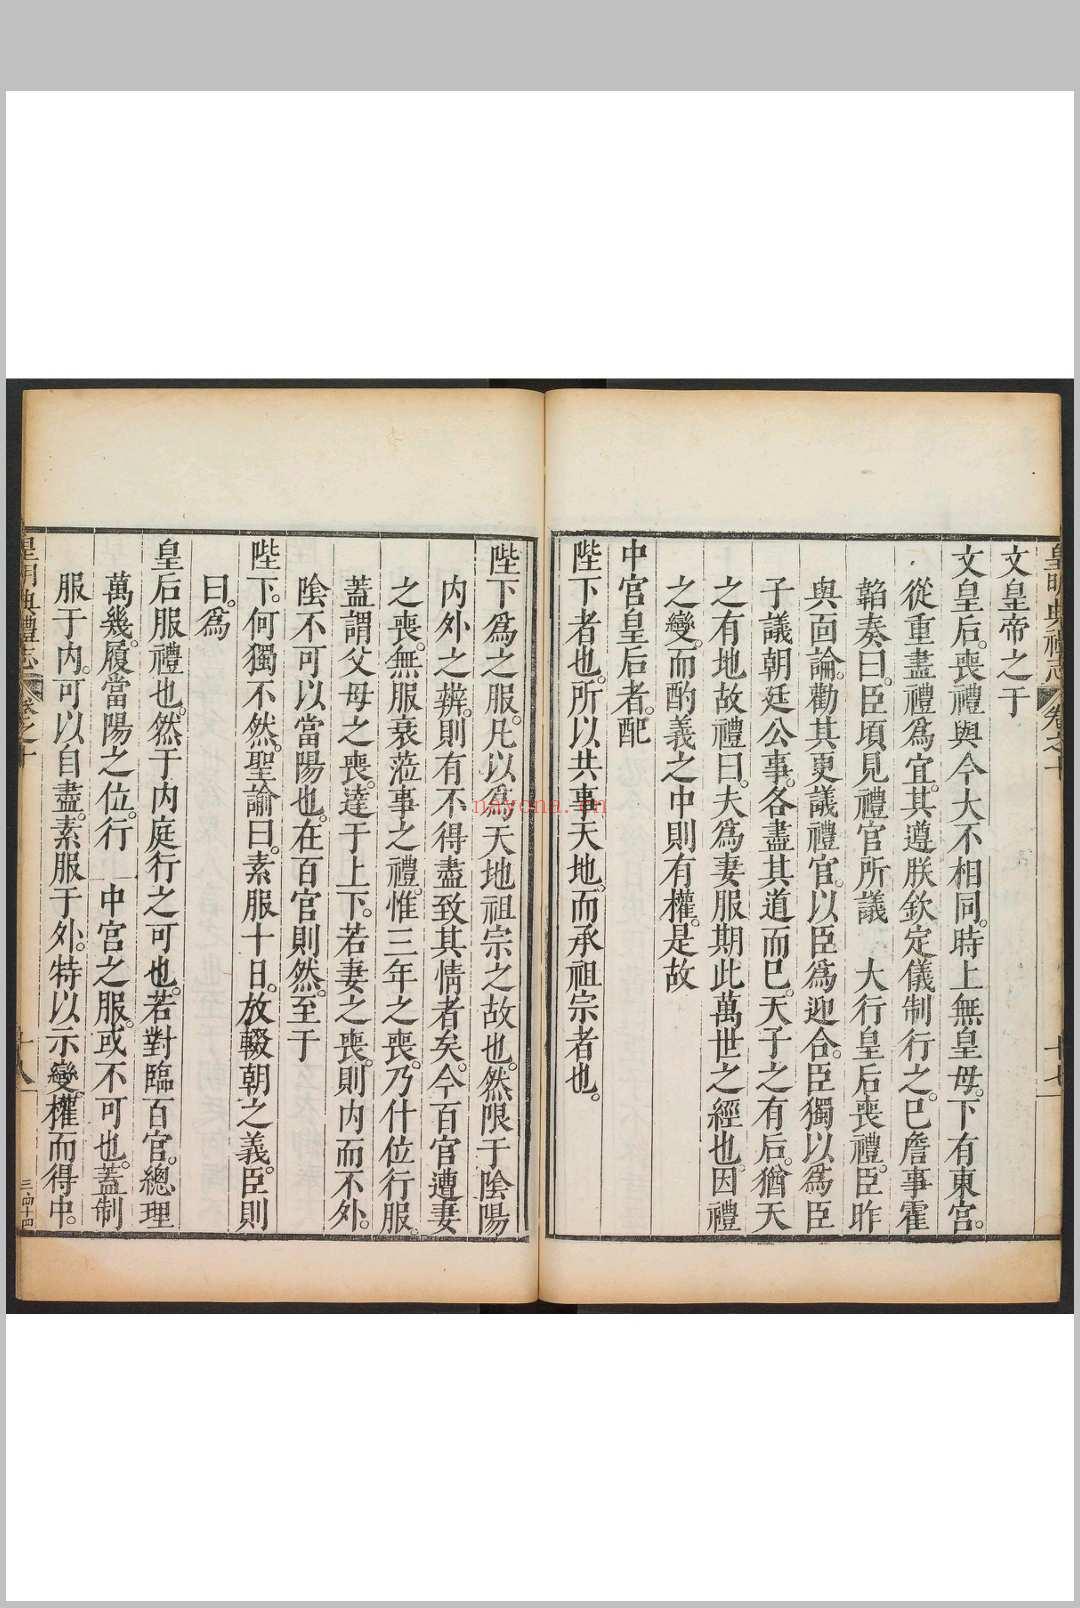 皇明典禮志 卷之十 十七
文皇帝之于
文皇后。喪禮與今大不相同。時上無皇母。下有東宮。
從重盡禮爲宜。其遵朕欽定儀制行之。已詹事霍
韜奏曰。臣頃見禮官所議 大行皇后喪禮。臣昨
與面論。勸其更議禮官。以臣爲迎合。臣獨以爲臣
子議朝廷公事。各盡其道而已。天子之有后。猶天
之有地故禮曰。夫爲妻服期此萬世之經也。因禮
之變。而酌義之中則有權。是故
中宮皇后者。配
陛下者也。所以共事天地。而承祖宗者也。
陛下爲之服。凡以爲天地祖宗之故也。然限于陰陽
内外之辨。則有不得盡致其情者矣。今百官遭妻
之喪。無服衰蒞事之禮。惟三年之喪。乃什位行服。
蓋謂父母之喪。達于上下。若妻之喪。則内而不外。
陰不可以當陽也。在百官則然。至于
陛下。何獨不然。聖諭曰。素服十日。放輟朝之義。臣則
曰。爲
皇后服禮也。然于内庭行之可也。若對臨百官。總理
萬幾。履當陽之位。行 中宮之服。或不可也。蓋制
服于内。可以自盡。素服于外。特以示變。權而得中。
皇明典禮志 卷之十 十八 三・四十四
nayona.cn